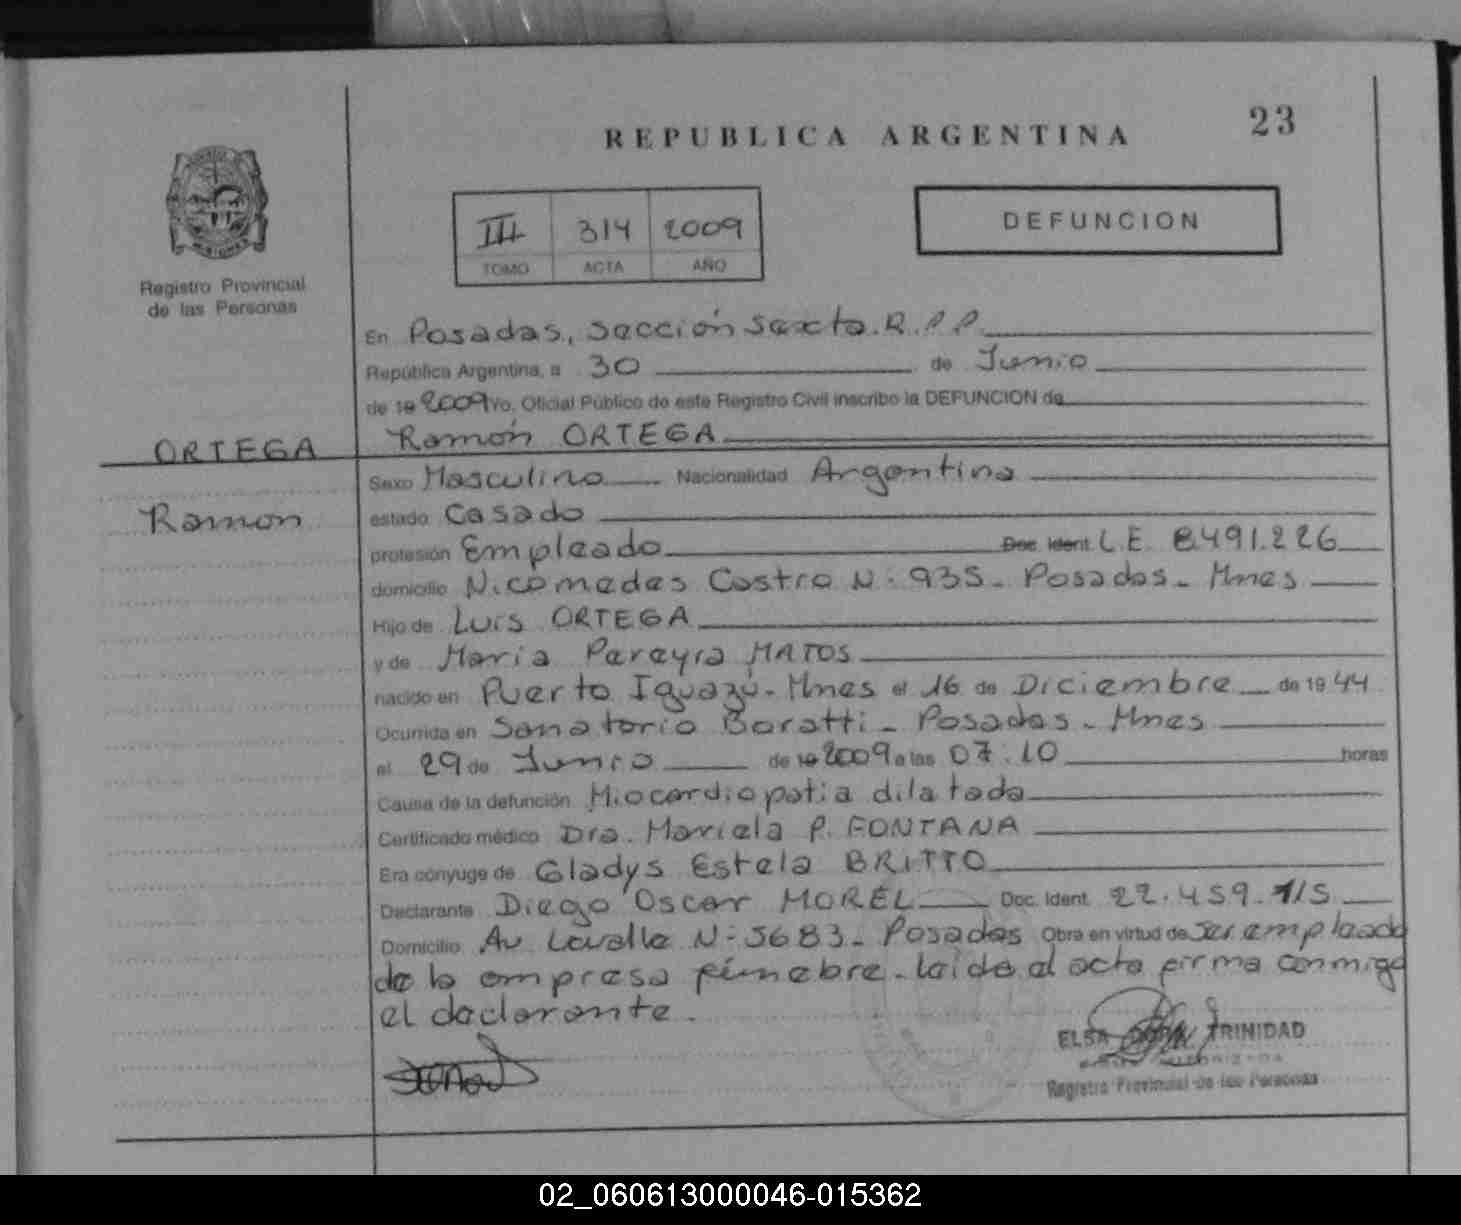 23
REPUBLICA ARGENTINA
III 314 2009
TOMO ACTA AÑO
DEFUNCION
MISIONES
Registro Provincial
de las Personas
En Posadas, sección Sexta. R.P.P.
República Argentina, a 30 de Junio
de 19 2009 Yo, Oficial Público de este Registro Civil inscribo la DEFUNCION de
ORTEGA Ramón ORTEGA
Sexo Masculino Nacionalidad Argentina
Ramon estado Casado
profesión Empleado Doc. Ident. L.E. 8.491.226
domicilio Nicomedes Castro N: 935- Posadas- Mnes
Hijo de Luis ORTEGA
y de Maria Pereyra MATOS
nacido en Puerto Iguazú- Mnes el 16 de Diciembre de 19 44
Ocurrida en Sanatorio Boratti- Posadas- Mnes
el 29 de Junio de 19 2009 a las 07:10 horas
Causa de la defunción Miocardiopatia dilatada
Certificado médico Dra. Mariela P. FONTANA
Era cónyuge de Gladys Estela BRITTO
Declarante Diego Oscar MOREL Doc. Ident. 22.459.715
Domicilio Av Lavalle N: 5683- Posadas Obra en virtud de Ser empleado
de la empresa fúnebre- leída el acta firma conmigo
el declarante.
ELSA TRINIDAD
Registro Provincial de las Personas
02_060613000046-015362